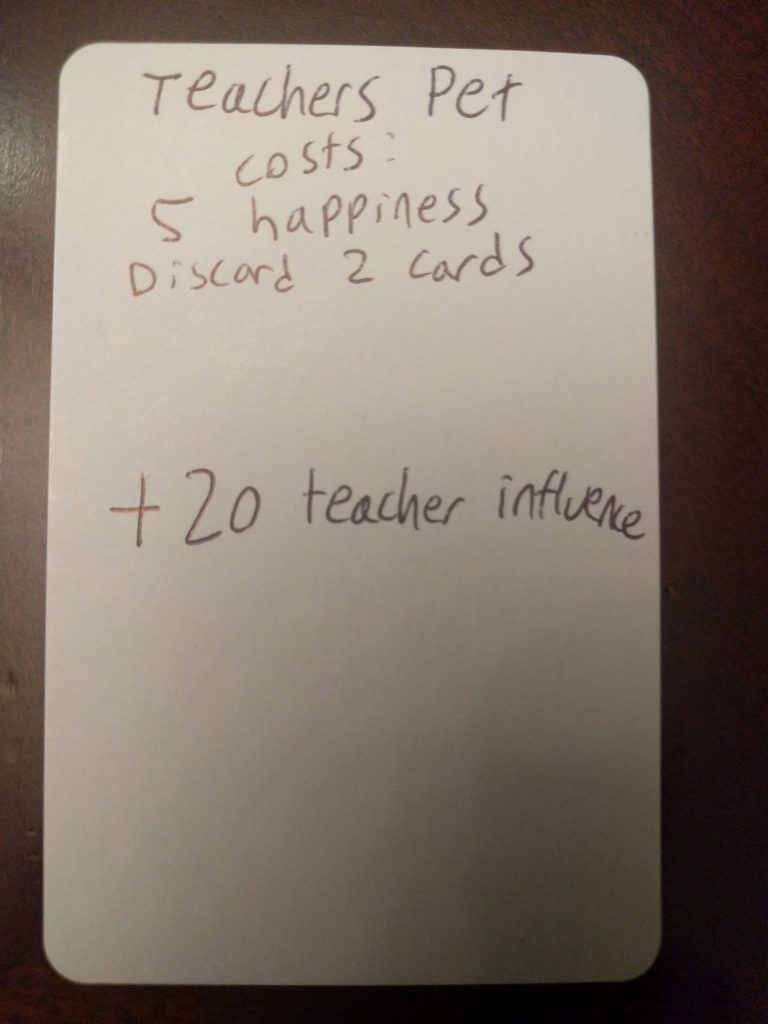 Teachers Pet
costs:
5 happiness
Discard 2 cards
+20 teacher influence